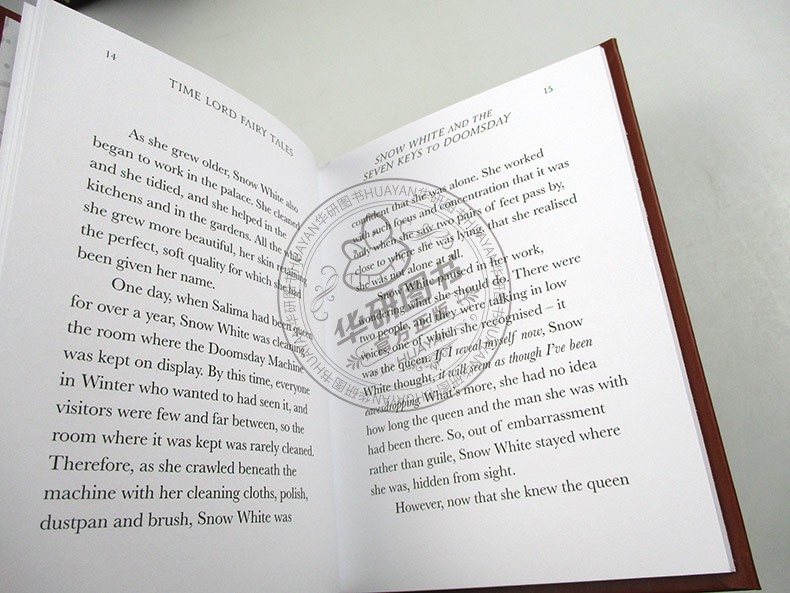 14
TIME LORD FAIRY TALES
As she grew older, Snow White also
began to work in the palace. She cleaned
and she tidied, and she helped in the
kitchens and in the gardens. All the while
she grew more beautiful, her skin retaining
the perfect, soft quality for which she had
been given her name.
One day, when Salima had been queen
for over a year, Snow White was cleaning
the room where the Doomsday Machine
was kept on display. By this time, everyone
in Winter who wanted to had seen it, and
visitors were few and far between, so the
room where it was kept was rarely cleaned.
Therefore, as she crawled beneath the
machine with her cleaning cloths, polish,
dustpan and brush, Snow White was
15
SNOW WHITE AND THE
SEVEN KEYS TO DOOMSDAY
confident that she was alone. She worked
with such focus and concentration that it was
only when she saw two pairs of feet pass by,
close to where she was lying, that she realised
she was not alone at all.
Snow White paused in her work,
wondering what she should do. There were
two people, and they were talking in low
voices, one of which she recognised – it
was the queen. If I reveal myself now, Snow
White thought, it will seem as though I've been
eavesdropping What's more, she had no idea
how long the queen and the man she was with
had been there. So, out of embarrassment
rather than guile, Snow White stayed where
she was, hidden from sight.
However, now that she knew the queen
华研图书HUAYAN华研图书HUAYAN
华研图书
官方正版
HUAYAN